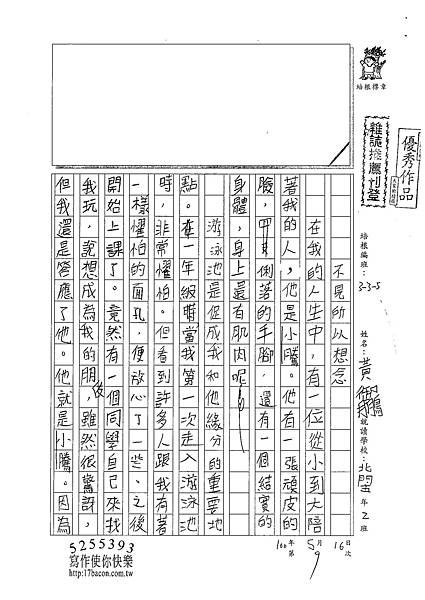 培根標章
優秀作品
雜誌推薦刊登
培根編班:3-3-5
姓名:黃
就讀學校:北 年2班
100年5月16日
第9次
不見所以想念
在我的人生中,有一位從小到大陪
著我的人,他是小騰。他有一張頑皮的
臉,俐落的手腳,還有一個結實的
身體,身上還有肌肉呢!
游泳池是促成我和他緣分的重要地
點。在一年級時當我第一次走入游泳池
時,非常懼怕。但看到許多人跟我有著
一樣懼怕的面孔,便放心了一些、之後
開始上課了。竟然有一個同學自己來找
我玩,說想成為我的朋友,雖然很驚訝,
但我還是答應了他。他就是小騰。因為
5255393
寫作使你快樂
http://17bacon.com.tw/